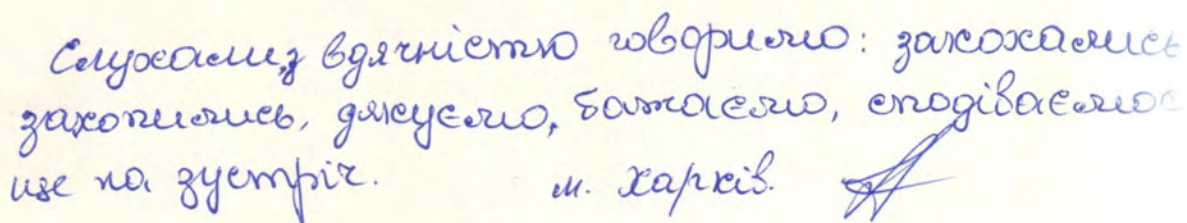 Слухали, з вдячністю говоримо: закохались
захопились, дякуємо, бажаємо, сподіваємос
ще на зустріч. м. Харків.